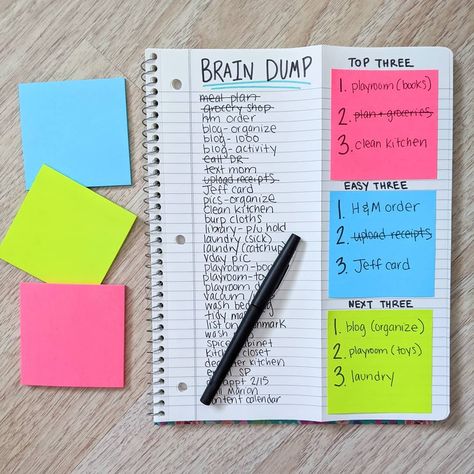 BRAIN DUMP
meal plan
grocery shop
hm order
blog-organize
blog-1000
blog-activity
call DR
text mom
upload receipts
Jeff card
pics-organize
clean kitchen
burp cloths
library-p/u hold
laundry (sick)
laundry (catchup)
vday pic
playroom-bo
playroom-to
playroom
vacuum
wash be
tidy ma
list on mark
wash
spice cabinet
kitchen closet
kitchen
SP
appt 2/15
Marian
content calendar
TOP THREE
1. playroom (books)
2. plan + groceries
3. clean kitchen
EASY THREE
1. H&M order
2. upload receipts
3. Jeff card
NEXT THREE
1. blog (organize)
2. playroom (toys)
3. laundry